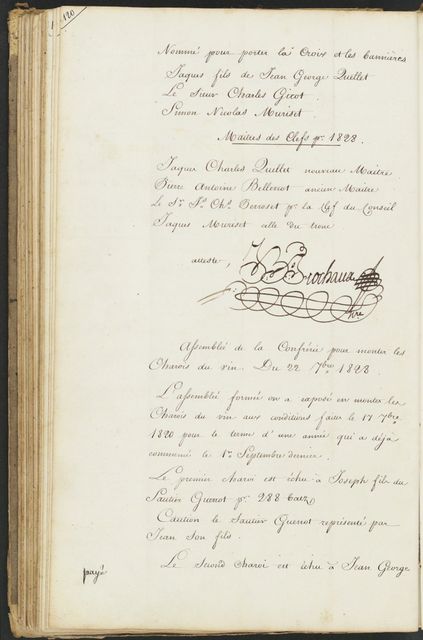 120
Nommé pour porter la Croix et les bannières
Jaques fils de Jean George Quellet
Le Sieur Charles Gicot.
Simon Nicolas Muriset.
Maîtres des Clefs pr. 1828.
Jaques Charles Quellet nouveau Maitre
Pierre Antoine Bellenot ancien Maitre
Le Sr. Js. Chs. Perroset pr. la Clef du Conseil
Jaques Muriset celle du trone
atteste,
Frochaux
Assemblée de la Confrérie pour monter les
Charois du vin. Du 22 7bre 1828.
L'assemblée formée on a exposé en montes les
Charois du vin aux conditions faites le 17 7bre
1820 pour le terme d'une année qui a déjà
commencé le 1er Septembre dernier.
Le premier charoi est échu à Joseph fils du
Sautier Guenot pr. 288 batz
Caution le Sautier Guenot représenté par
Jean son fils.
Le Second Charoi est échu à Jean George
payé